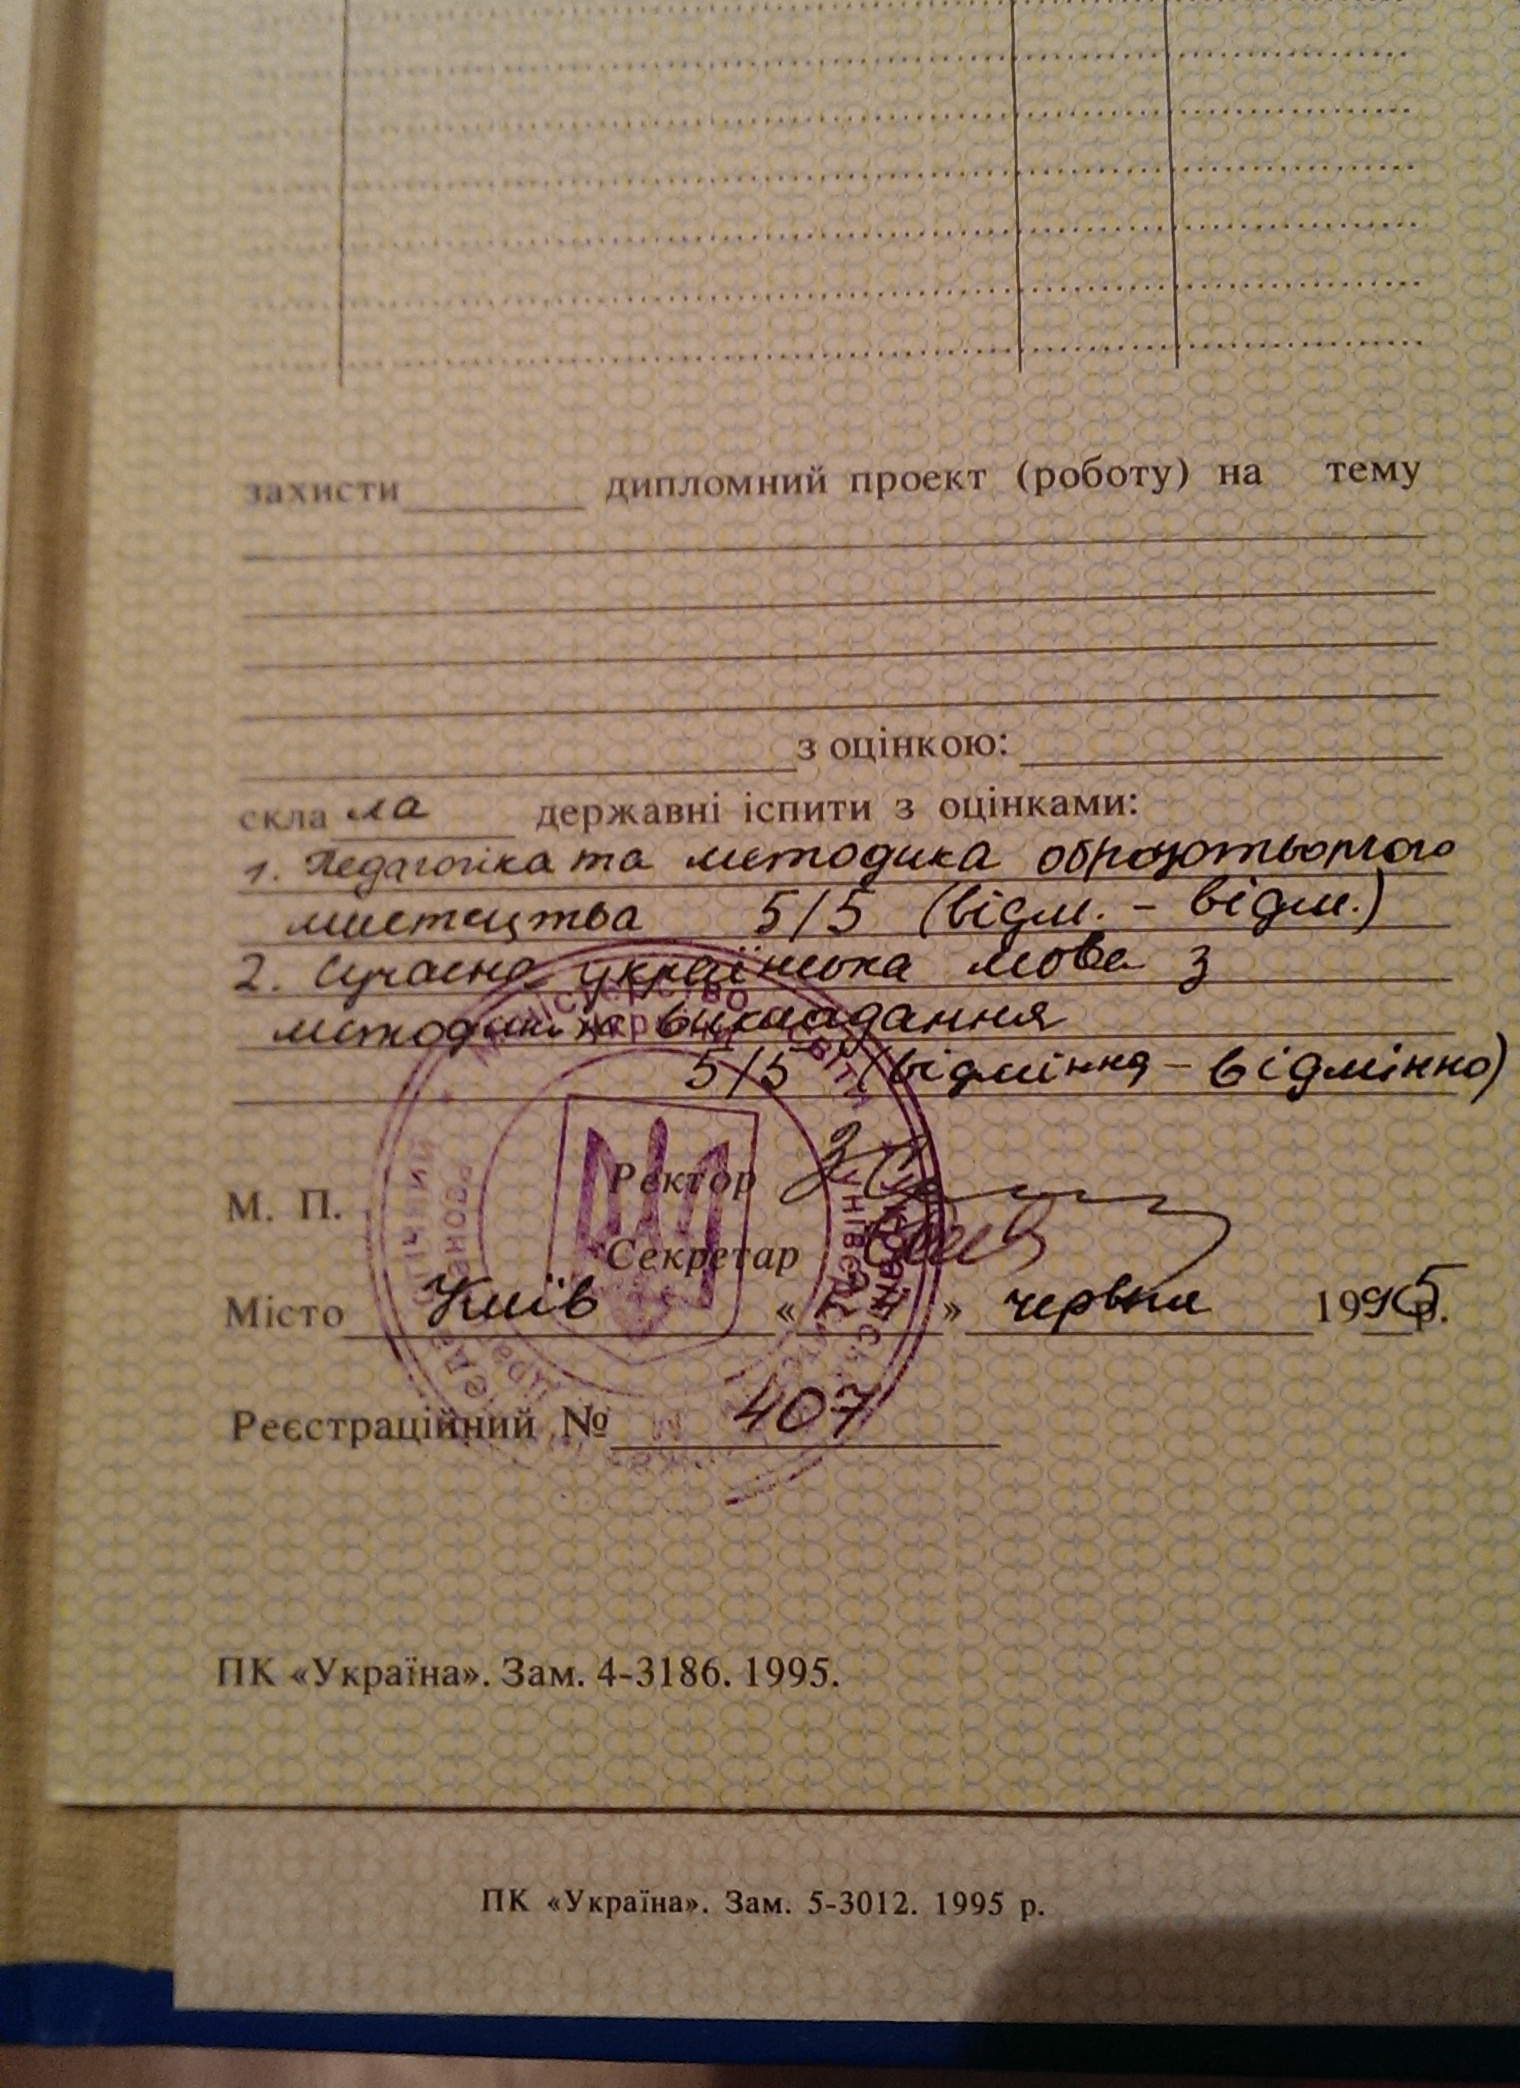 захисти дипломний проект (роботу) на тему
з оцінкою:
скла ла державні іспити з оцінками:
1. Педагогіка та методика образотворчого
мистецтва 5/5 (відм. – відм.)
2. Сучасна українська мова з
методикою викладання
5/5 (відмінно – відмінно)
М. П.
Ректор
Секретар
Місто Київ « » червня 1995 р.
Реєстраційний № 407
ПК «Україна». Зам. 4-3186. 1995.
ПК «Україна». Зам. 5-3012. 1995 р.